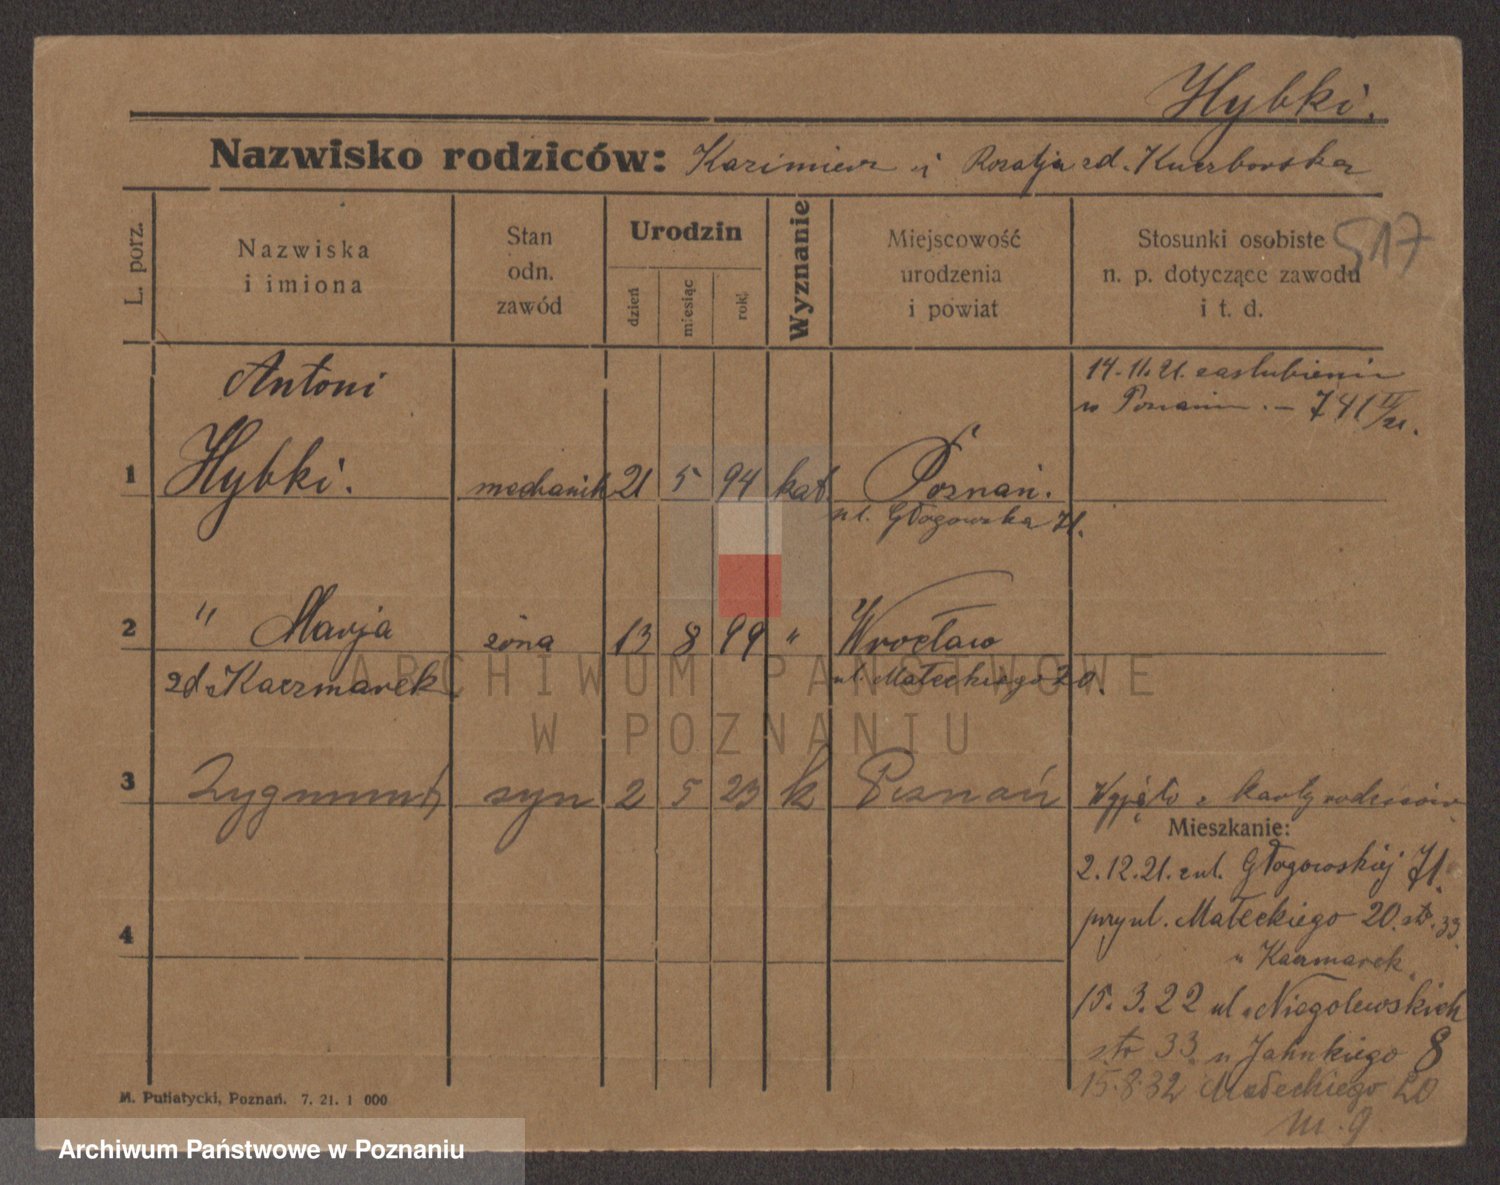 Hybki.
Nazwisko rodziców: Kazimierz i Rozalja zd. Kuczborska
517
L. porz.
Nazwiska i imiona
Stan odn. zawód
Urodzin
dzień
miesiąc
rok
Wyznanie
Miejscowość urodzenia i powiat
Stosunki osobiste n. p. dotyczące zawodu i t. d.
14.11.21. zaślubieni
w Poznaniu. — 741
Antoni
1 Hybki. mechanik 21 5 94 kat. Poznań.
ul. Głogowska 71.
2 " Marja żona 13 8 99 " Wrocław
zd. Kaczmarek ul. Małeckiego 20.
3 Zygmunt syn 2 5 23 k Poznań Wyjęto z karty rodziców
Mieszkanie:
2.12.21. z ul. Głogowskiej 71.
przy ul. Małeckiego 20. str. 33.
u Kaczmarek.
15.3.22 ul. Niegolewskich 8
str 33. u Jahnkiego
15.8.32 Małeckiego 20
m. 9
4
M. Putiatycki, Poznań. 7. 21. 1 000
ARCHIWUM PAŃSTWOWE
W POZNANIU
Archiwum Państwowe w Poznaniu